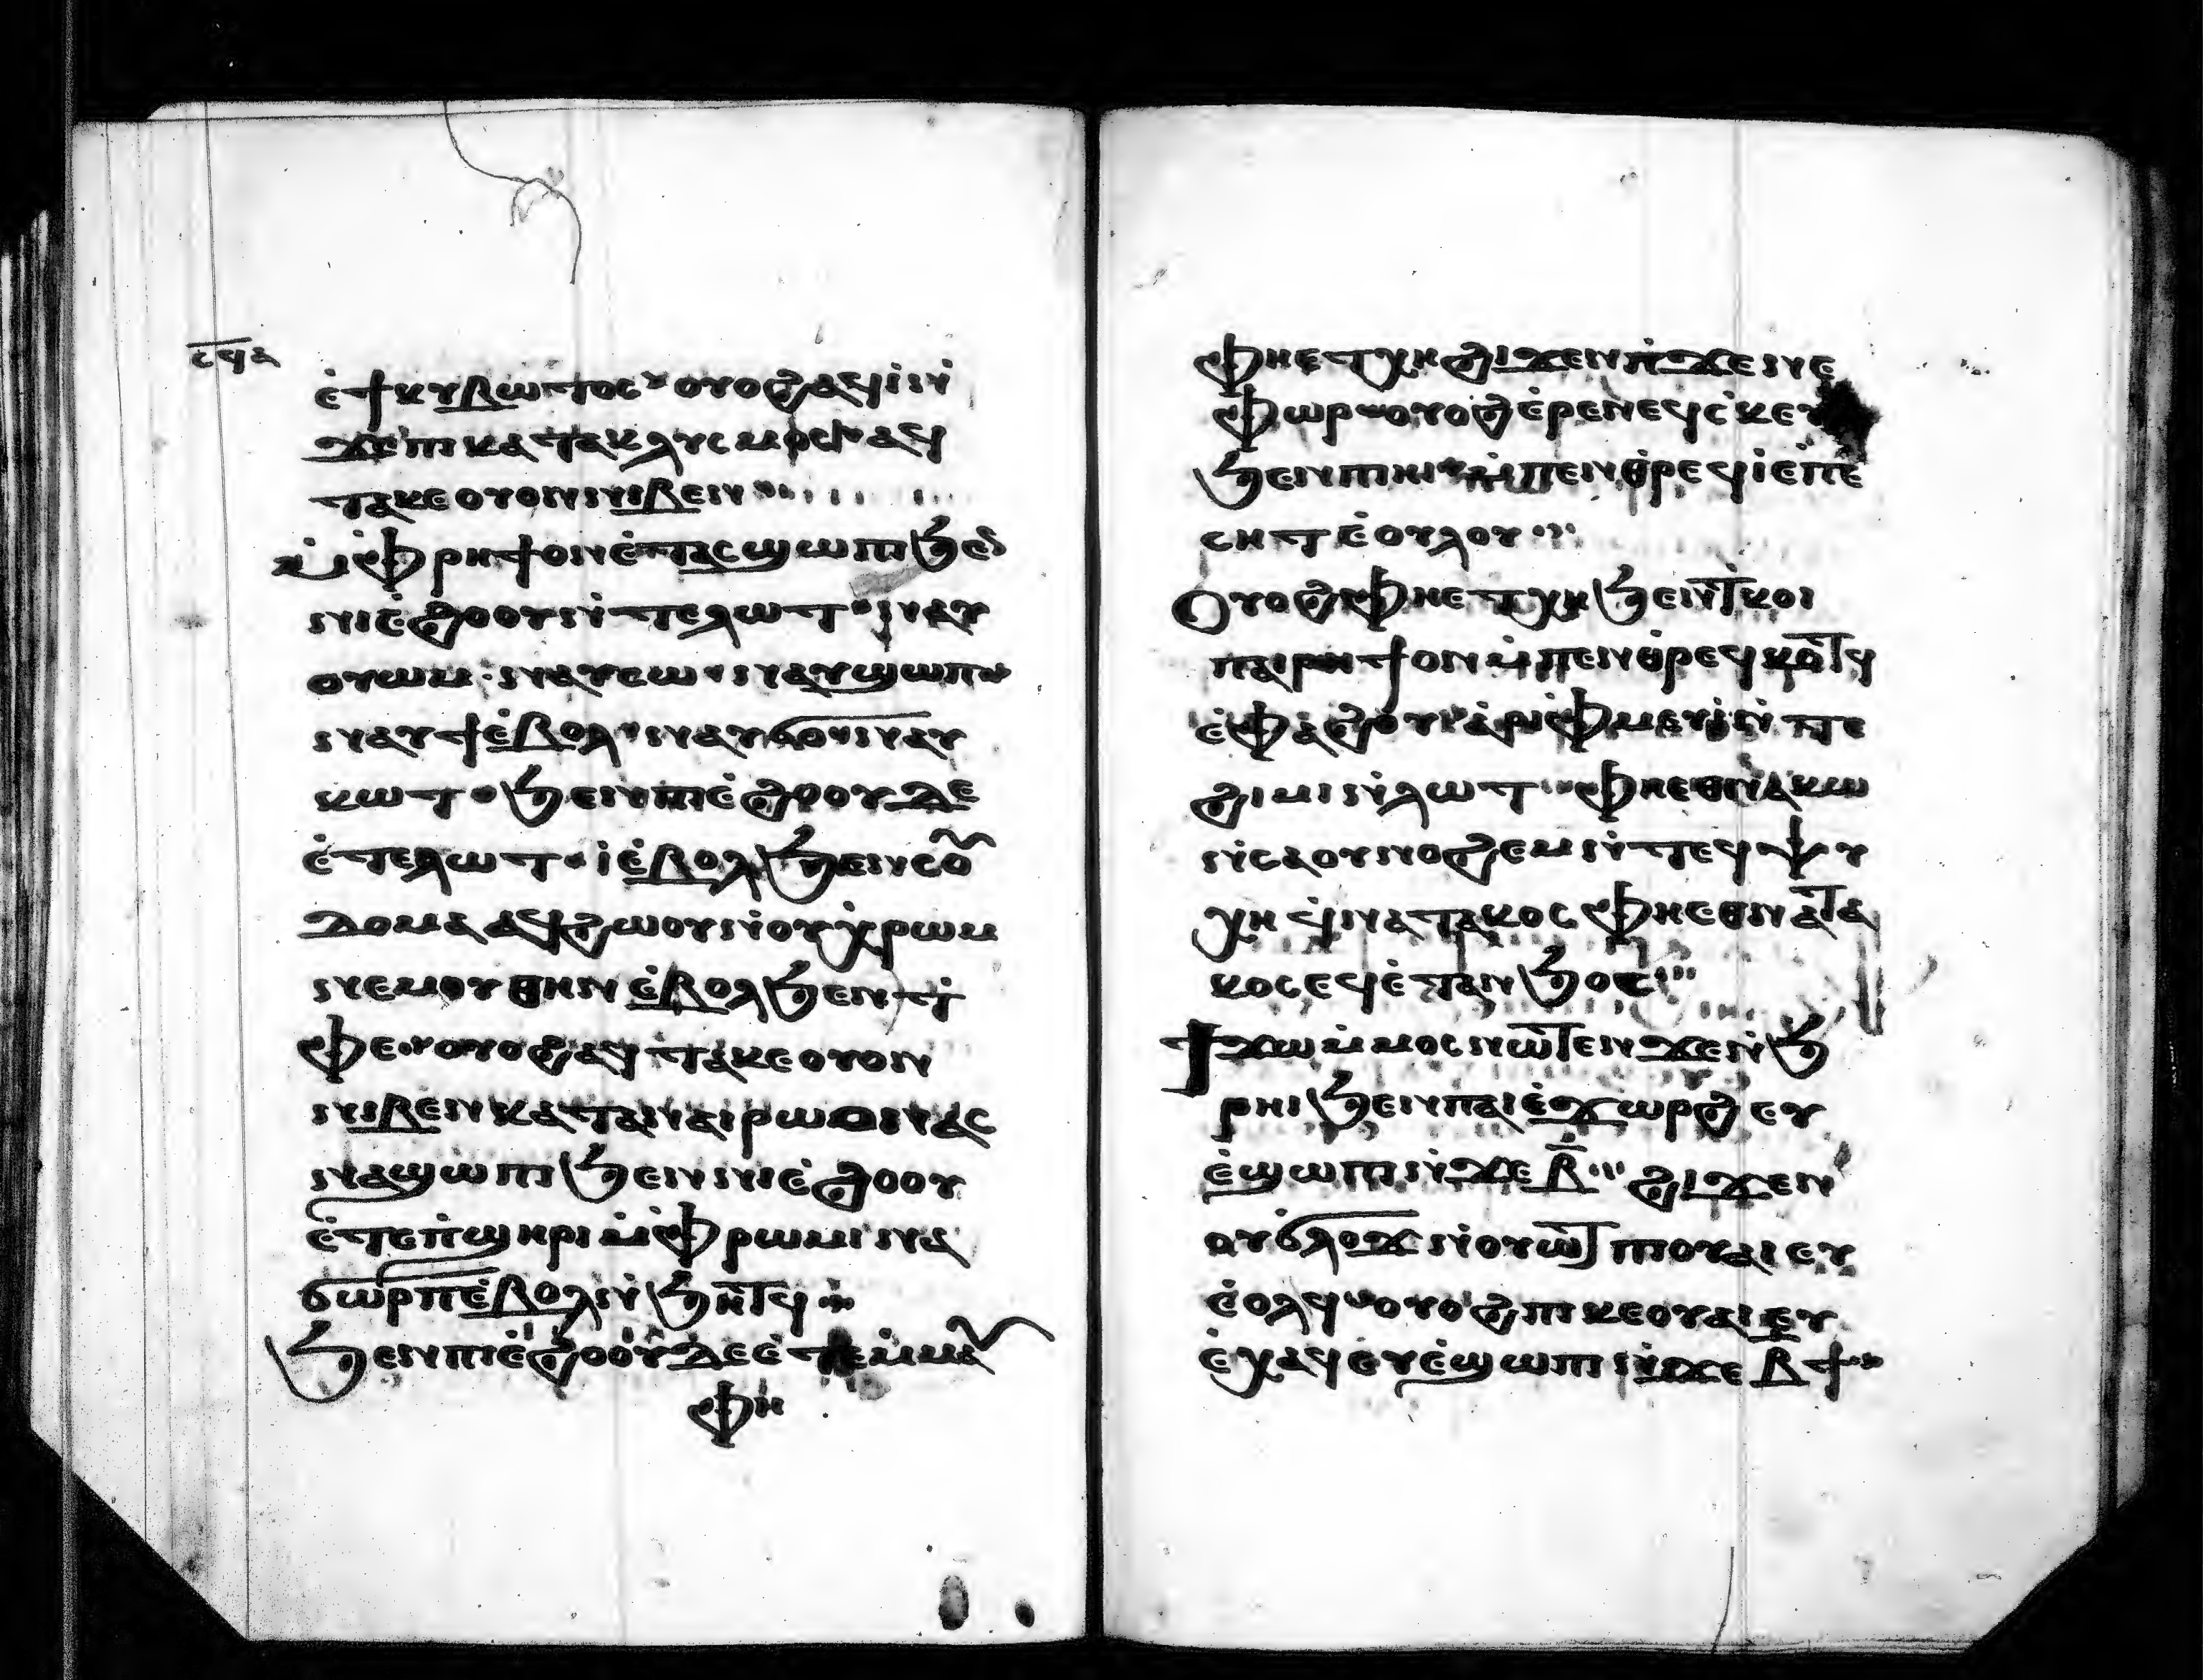 ⲥϥⲁ
ⲉ̇ϯⲕⲩⲃⲱⲧⲟⲥ ⲟⲩⲟϩ ⲁϥⲓ̇ ⲛ̇
ϫⲉⲡⲓⲕⲁⲧⲁⲕⲗⲩⲥⲙⲟⲥ ⲁϥ
ⲧⲁⲕⲉ ⲟⲩⲟⲛ ⲛⲓⲃⲉⲛ
ⲙ̇ⲫⲣⲏϯ ⲟⲛ ⲉ̇ⲧⲁⲥϣⲱⲡⲓ ϧⲉⲛ
ⲛⲓⲉ̇ϩⲟⲟⲩ ⲛ̇ⲧⲉⲗⲱⲧ ⲛⲁⲩ
ⲟⲩⲱⲙ ⲛⲁⲩⲥⲱ ⲛⲁⲩϣⲱⲡ
ⲛⲁⲩϯ ⲉ̇ⲃⲟⲗ ⲛⲁⲩϭⲟ ⲛⲁⲩ
ⲕⲱⲧ ϧⲉⲛ ⲡⲓⲉ̇ϩⲟⲟⲩ ⲇⲉ
ⲉ̇ⲧⲉⲗⲱⲧ ⲓ̇ ⲉ̇ⲃⲟⲗ ϧⲉⲛ ⲥⲟ
ⲇⲟⲙⲁ ⲁϥϩⲱⲟⲩ ⲛ̇ⲟⲩⲭ̇ⲣⲱⲙ
ⲛⲉⲙ ⲟⲩⲑⲏⲛ ⲉ̇ⲃⲟⲗ ϧⲉⲛ ⲧ̇
ⲫⲉ ⲟⲩⲟϩ ⲁϥⲧⲁⲕⲉ ⲟⲩⲟⲛ
ⲛⲓⲃⲉⲛ ⲕⲁⲧⲁ ⲛⲁⲓ ⲣⲱ ⲟⲛ ⲁⲥ
ⲛⲁϣⲱⲡⲓ ϧⲉⲛ ⲛⲓⲉ̇ϩⲟⲟⲩ
ⲉ̇ⲧⲉⲡ̇ϣⲏⲣⲓ ⲙ̇ⲫⲣⲱⲙⲓ ⲛⲁ
ϭⲱⲣⲡ ⲉ̇ⲃⲟⲗ ⲛ̇ϧⲏⲧϥ
ϧⲉⲛ ⲡⲓⲉ̇ϩⲟⲟⲩ ⲇⲉ ⲉ̇ⲧⲉⲙ̇ⲙⲁ
ⲫⲏ
ⲫⲏ ⲉⲧⲭⲏ ϩⲓϫⲉⲛ ⲡ̇ϫⲉⲛⲉ
ⲫⲱⲣ ⲟⲩⲟϩ ⲉ̇ⲣⲉ ⲛⲉϥⲥ̇ⲕⲉⲩ
ϧⲉⲛ ⲡⲓⲏⲓ ⲙ̇ⲡⲉⲛⲑⲣⲉϥⲓ̇ ⲉ̇ⲡⲉ
ⲥⲏⲧ ⲉ̇ⲟⲗⲟⲩ
Ⲟⲩⲟϩ ⲫⲏ ⲉⲧⲭⲏ ϧⲉⲛ ⲧ̇ⲕⲟⲓ
ⲡⲁⲓⲣⲏϯ ⲟⲛ ⲙ̇ⲡⲉⲛⲑⲣⲉϥⲕⲟⲧϥ
ⲉ̇ⲫⲁϩⲟⲩ ⲁ̇ⲣⲓⲫⲙⲉⲩⲓ̇ ⲛ̇ⲧⲉ
ϩⲓⲙⲓ ⲛ̇ⲗⲱⲧ ⲫⲏ ⲉⲑⲛⲁⲕⲱ
ⲛ̇ⲥⲁ ⲟⲩⲛⲟϩⲉⲙ ⲛ̇ⲧⲉϥⲯⲩ
ⲭⲏ ϥ̇ⲛⲁⲧⲁⲕⲟⲥ ⲫⲏ ⲉⲑⲛⲁⲧⲁ
ⲕⲟⲥ ⲉϥⲉ̇ⲧⲁⲛϧⲟⲥ
Ϯϫⲱ ⲙ̇ⲙⲟⲥ ⲛⲱⲧⲉⲛ ϫⲉ ⲛ̇ϧ
ⲣⲏⲓ ϧⲉⲛ ⲡⲁⲓⲉ̇ϫⲱⲣϩ ⲉⲩ
ⲉ̇ϣⲱⲡⲓ ⲛ̇ϫⲉ ⲃ̅ ϩⲓϫⲉⲛ
ⲟⲩϭⲗⲟϫ ⲛ̇ⲟⲩⲱⲧ ⲡⲓⲟⲩⲁⲓ ⲉⲩ
ⲉ̇ⲟⲗϥ ⲟⲩⲟϩ ⲡⲓⲕⲉⲟⲩⲁⲓ ⲉⲩ
ⲉ̇ⲭⲁϥ ⲉⲩⲉ̇ϣⲱⲡⲓ ⲛ̇ϫⲉ ⲃ̅ϯ